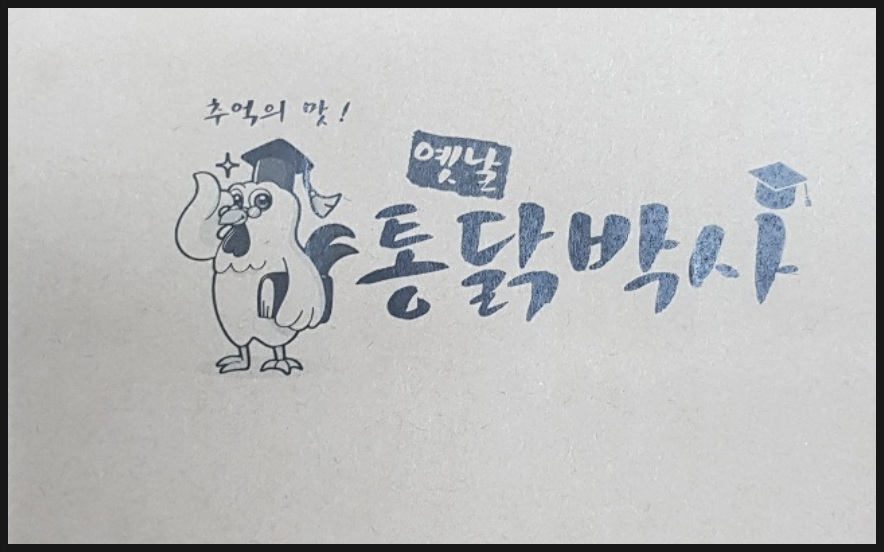 추억의 맛!
옛날
통닭박사